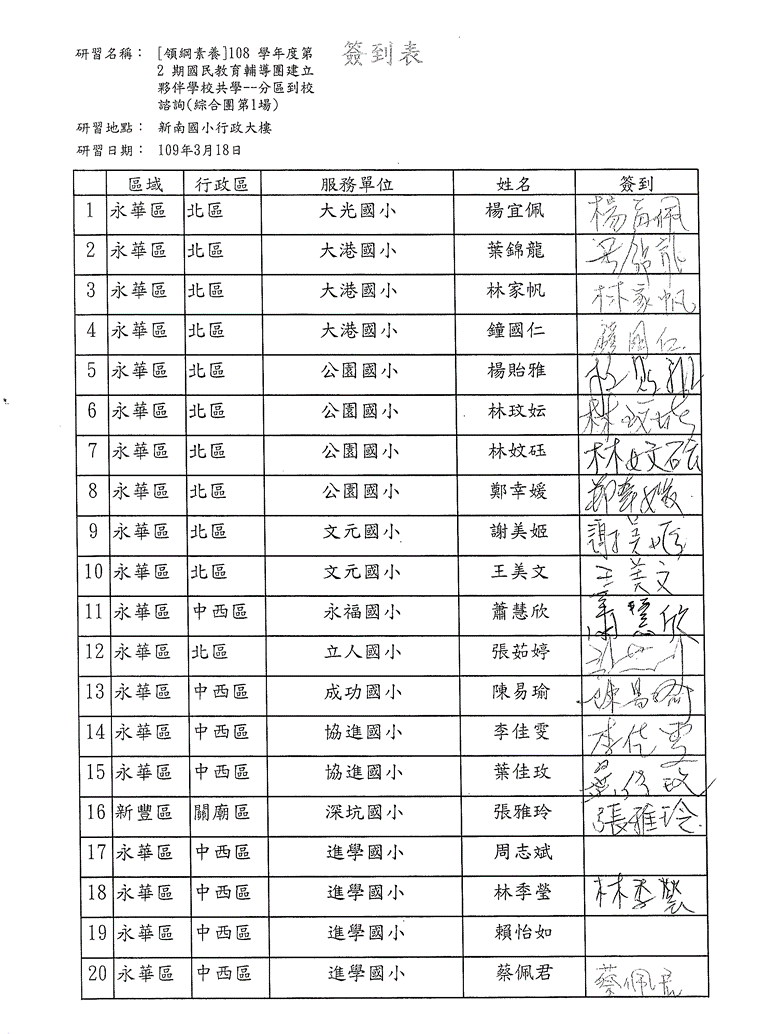 研習名稱： [領綱素養]108 學年度第 簽到表
2 期國民教育輔導團建立
夥伴學校共學--分區到校
諮詢(綜合團第1場)
研習地點： 新南國小行政大樓
研習日期： 109年3月18日
區域 行政區 服務單位 姓名 簽到
1 永華區 北區 大光國小 楊宜佩 楊宜佩
2 永華區 北區 大港國小 葉錦龍 葉錦龍
3 永華區 北區 大港國小 林家帆 林家帆
4 永華區 北區 大港國小 鐘國仁 鐘國仁
5 永華區 北區 公園國小 楊貽雅 楊貽雅
6 永華區 北區 公園國小 林玟妘 林玟妘
7 永華區 北區 公園國小 林妏砡 林妏砡
8 永華區 北區 公園國小 鄭幸媛 鄭幸媛
9 永華區 北區 文元國小 謝美姬 謝美姬
10 永華區 北區 文元國小 王美文 王美文
11 永華區 中西區 永福國小 蕭慧欣 蕭慧欣
12 永華區 北區 立人國小 張茹婷
13 永華區 中西區 成功國小 陳易瑜 陳易瑜
14 永華區 中西區 協進國小 李佳雯 李佳雯
15 永華區 中西區 協進國小 葉佳玫 葉佳玫
16 新豐區 關廟區 深坑國小 張雅玲 張雅玲
17 永華區 中西區 進學國小 周志斌
18 永華區 中西區 進學國小 林季瑩 林季瑩
19 永華區 中西區 進學國小 賴怡如
20 永華區 中西區 進學國小 蔡佩君 蔡佩君